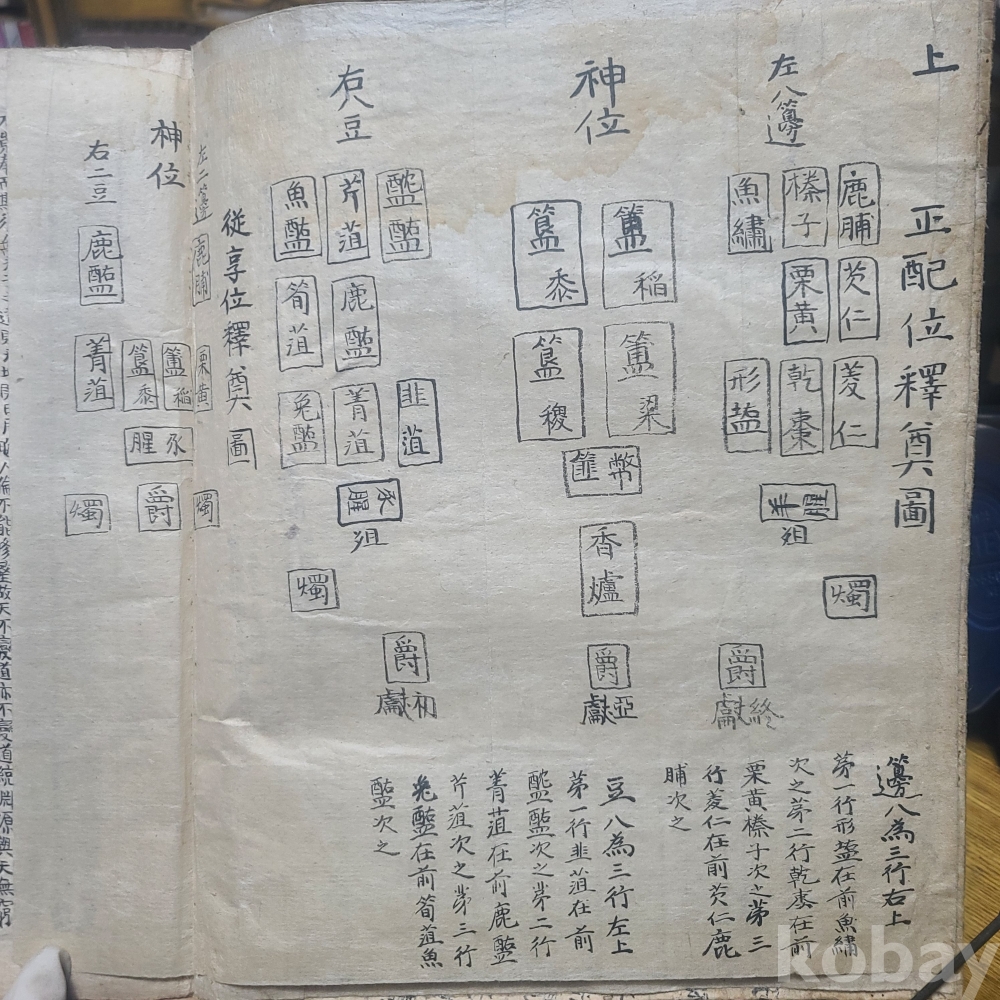 上
正配位釋奠圖
左八籩
鹿脯
芡仁
菱仁
榛子
栗黃
乾棗
魚鱐
形塩
腥
羊
俎
燭
神位
簠
稻
簠
粱
簋
黍
簋
稷
幣
篚
香爐
爵
終獻
爵
亞獻
爵
初獻
右八豆
醓醢
韭菹
芹菹
鹿醢
菁菹
魚醢
筍菹
兔醢
腥
豕
俎
燭
籩八為三行右上
第一行形塩在前魚鱐
次之第二行乾棗在前
栗黃榛子次之第三
行菱仁在前芡仁鹿
脯次之
豆八為三行左上
第一行韭菹在前
醓醢次之第二行
菁菹在前鹿醢
芹菹次之第三行
兔醢在前筍菹魚
醢次之
從享位釋奠圖
左二籩
鹿脯
栗黃
燭
神位
簠
稻
簋
黍
豕腥
爵
右二豆
鹿醢
菁菹
燭
kobay